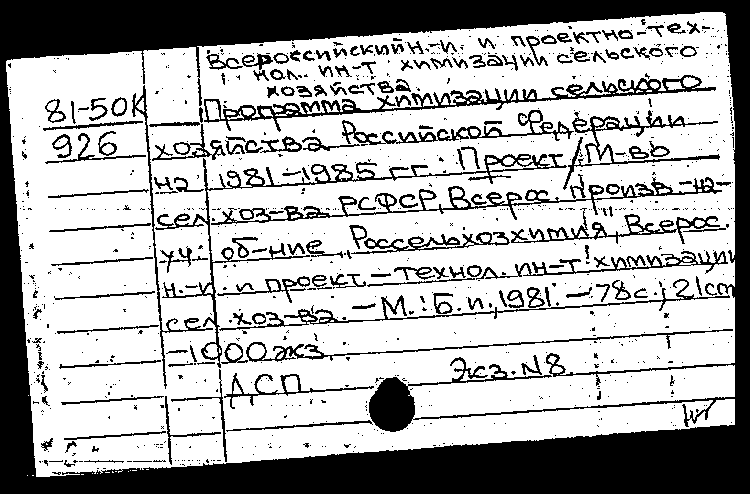 Всероссийский н.-и. и проектно-тех-
нол. ин-т химизации сельского
хозяйства.
81-50К Программа химизации сельского
926 хозяйства Российской Федерации
на 1981-1985 гг: Проект / М-во
сел. хоз-ва РСФСР, Всерос. произв.-на-
уч. об-ние "Россельхозхимия", Всерос.
н.-и. и проект.-технол. ин-т химизации
сел. хоз-ва. - М.: Б.и., 1981. - 78с.; 21см
-1000 экз.
ДСП. Экз. N8